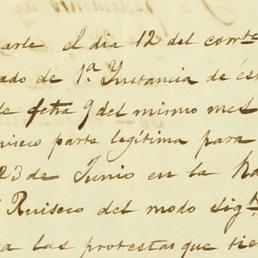 arte el dia 12 del corrte
ado de 1.ª Instancia de és
de fcha 9 del mismo mes
uiseco parte legitima para
23 de Junio en la Ha
Ruiseco del modo sigte
a las protestas que tie